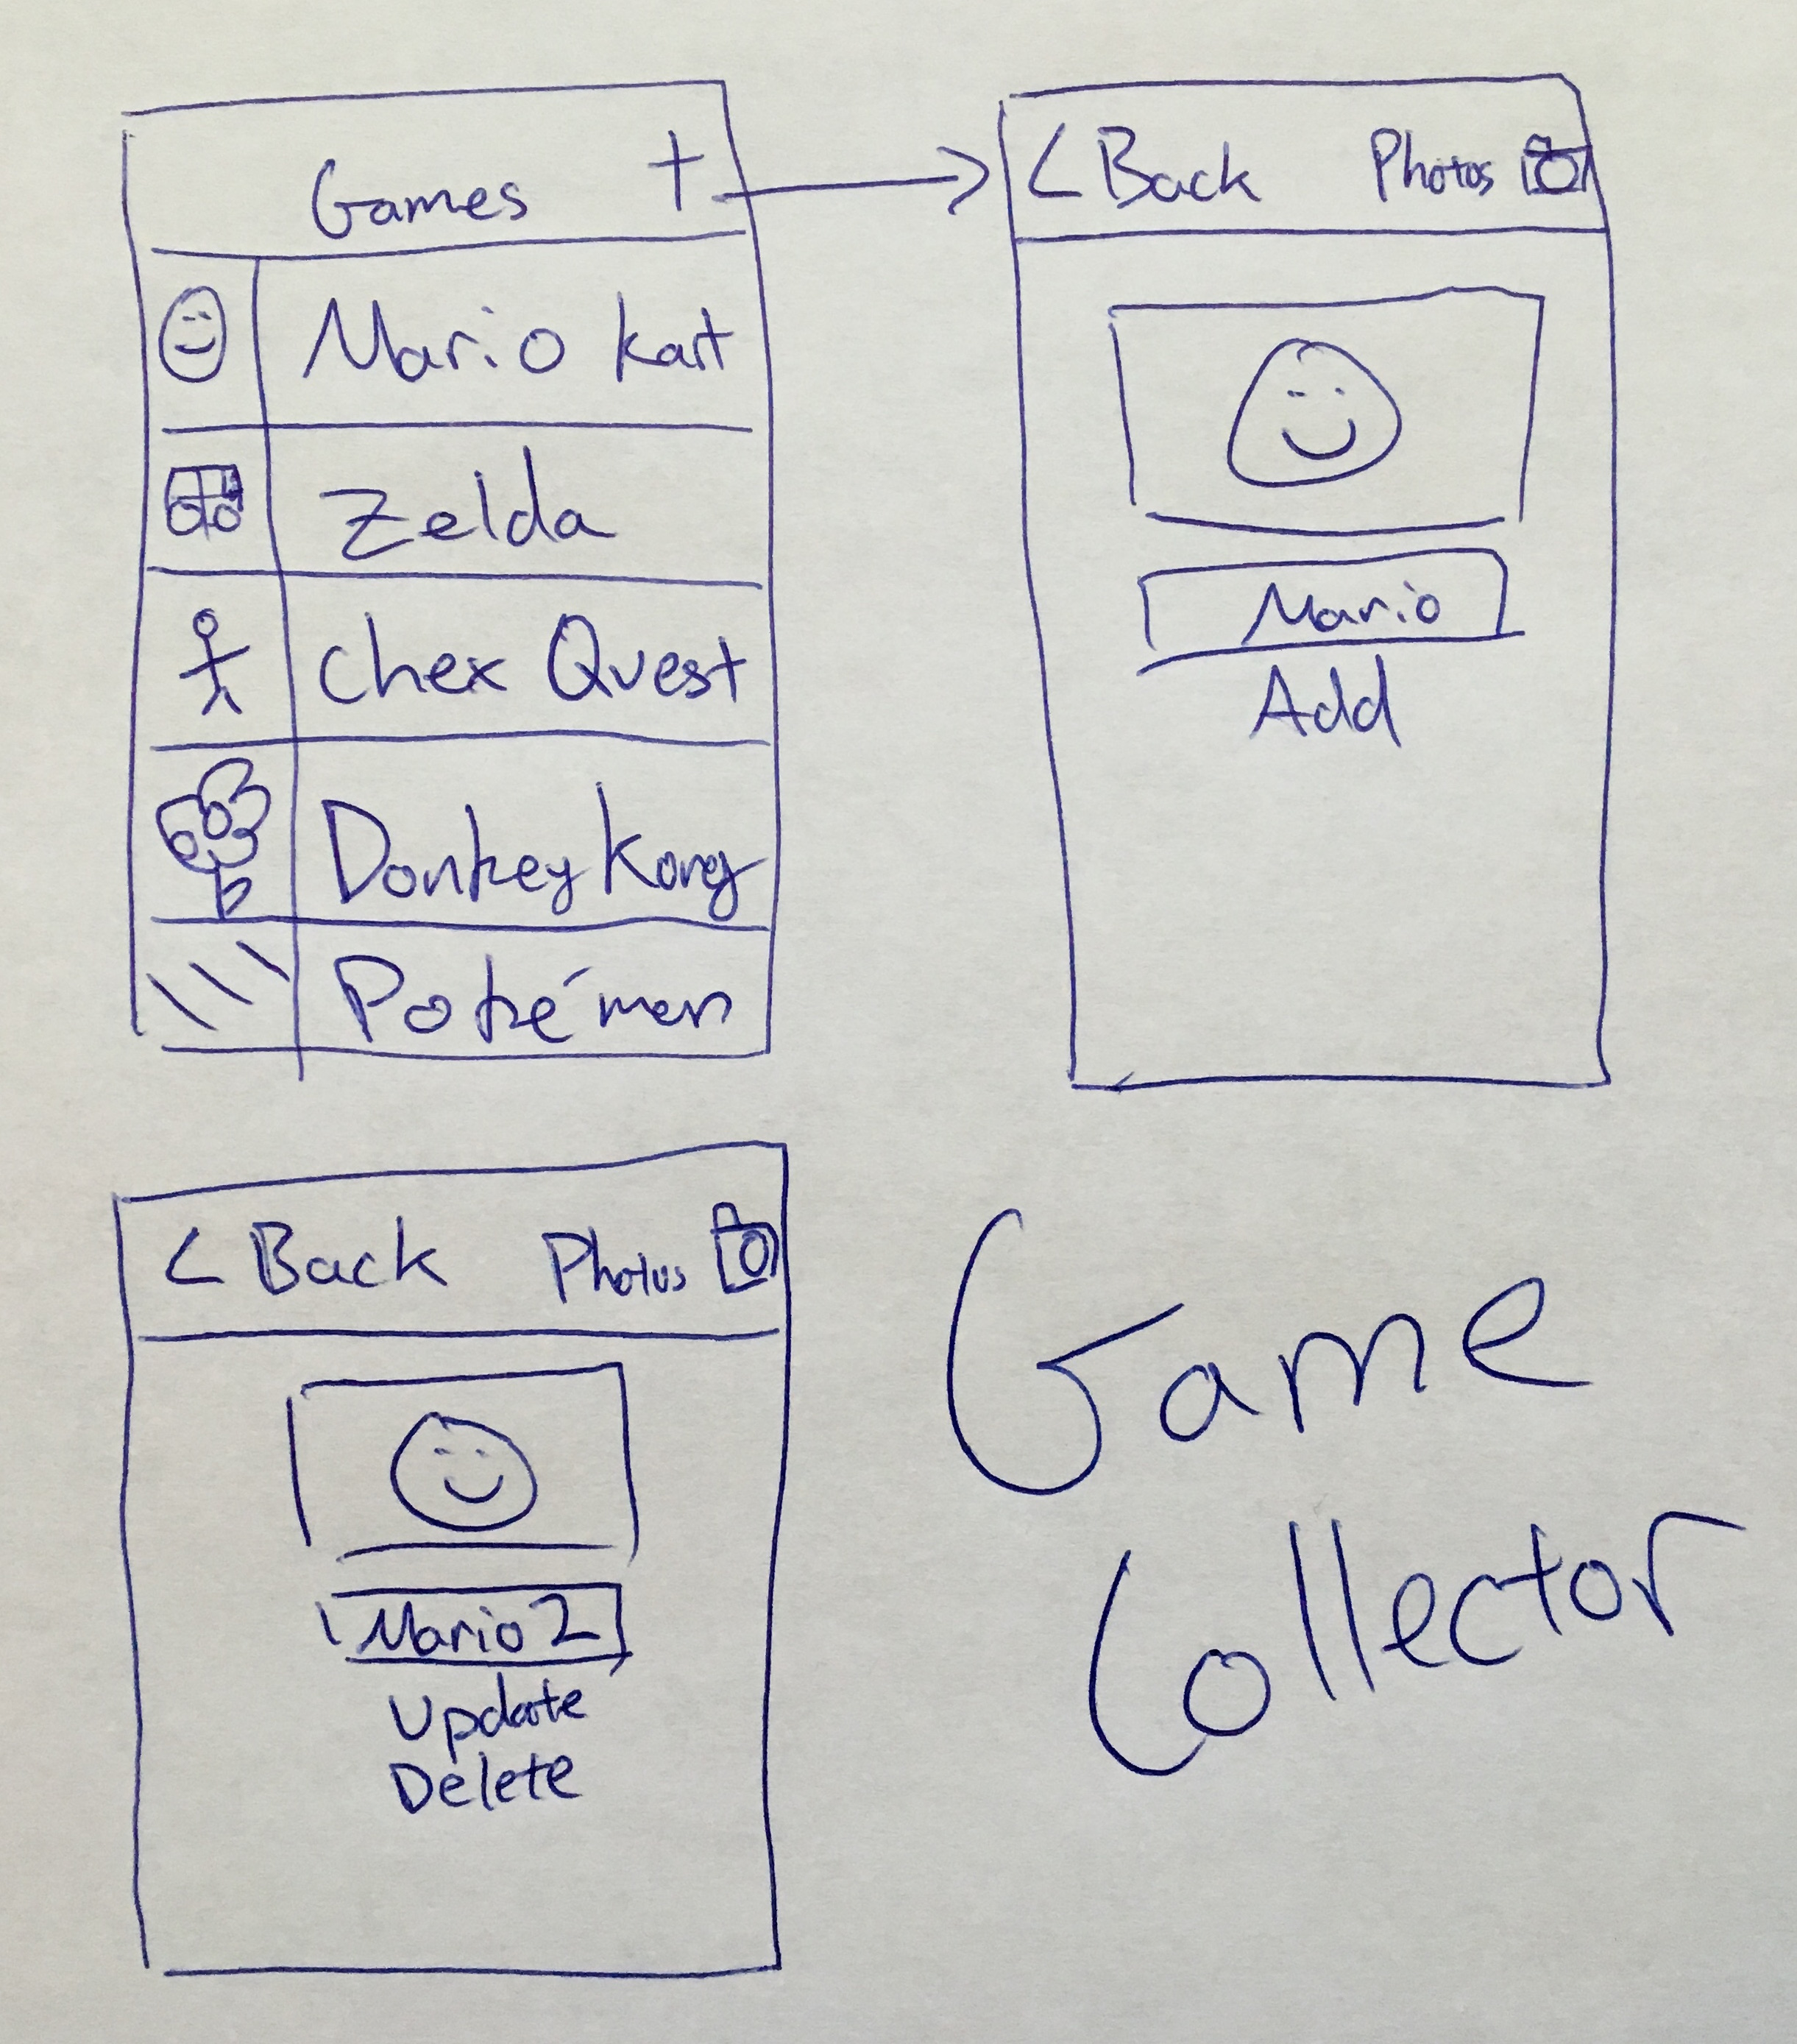 Games +
Mario Kart
Zelda
Chex Quest
Donkey Kong
Pokémon
< Back Photos
Mario
Add
< Back Photos
Mario 2
Update
Delete
Game
Collector